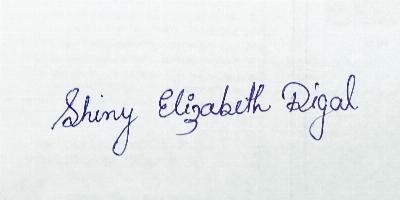 Shiny Elizabeth Digal